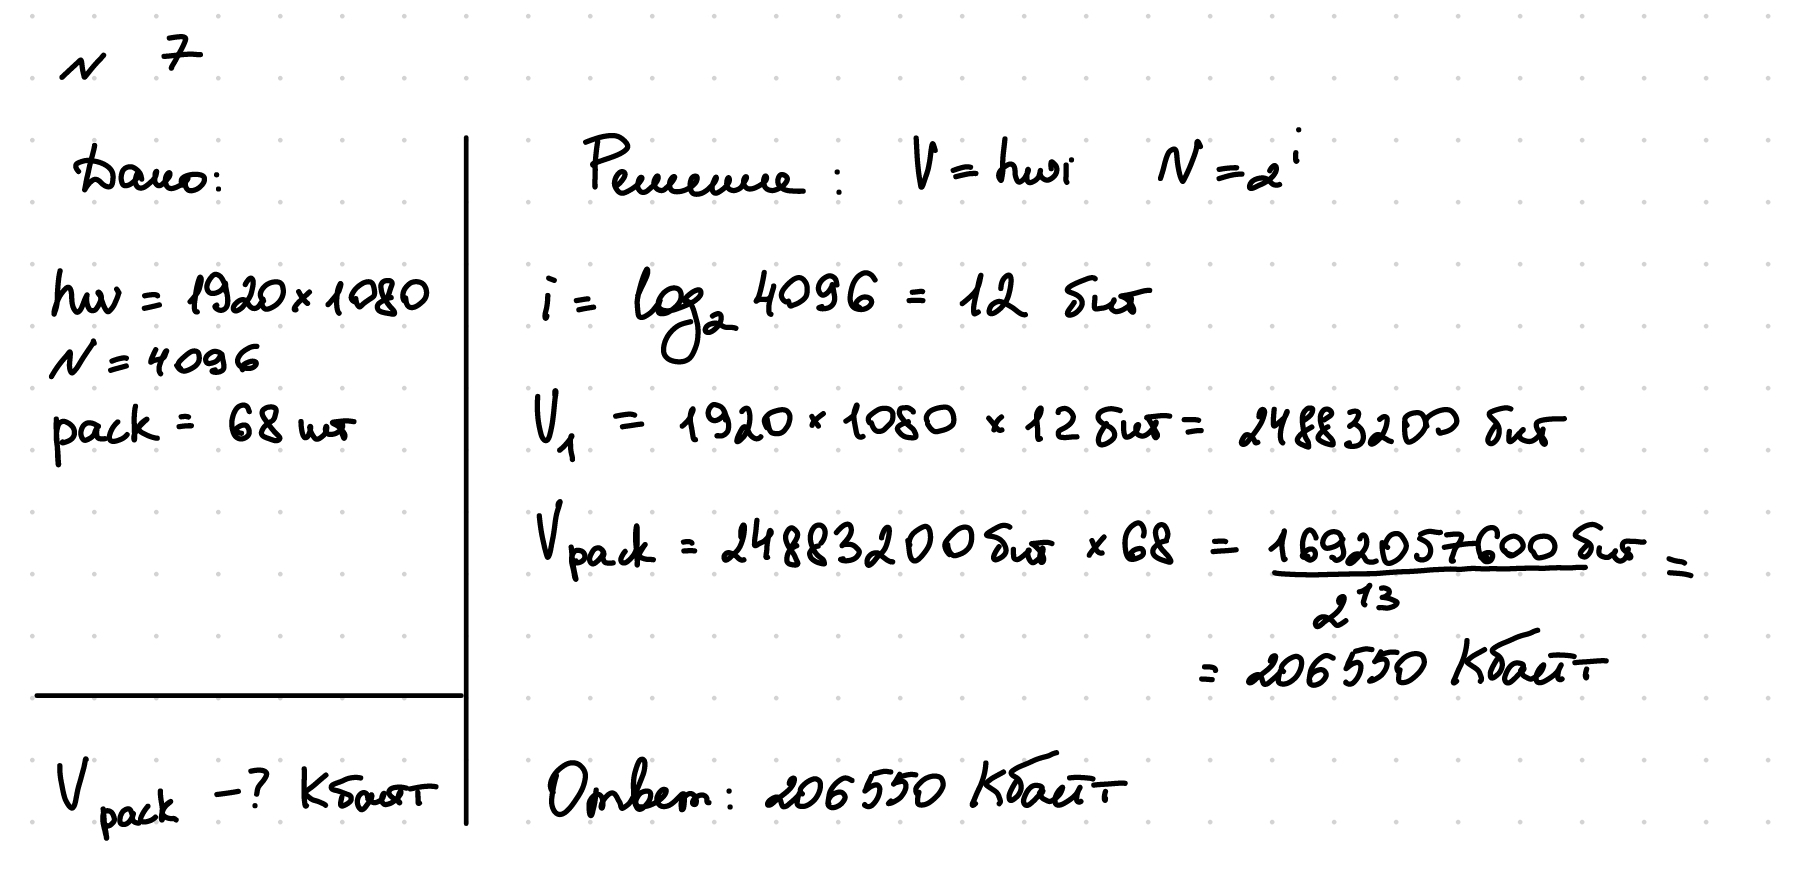 N 7
Дано:
hw = 1920 × 1080
N = 4096
pack = 68 шт
V pack - ? Кбайт
Решение: V = hwi N = 2^i
i = log₂ 4096 = 12 бит
V₁ = 1920 × 1080 × 12 бит = 24883200 бит
V pack = 24883200 бит × 68 = 1692057600 бит / 2^13 =
= 206550 Кбайт
Ответ: 206550 Кбайт